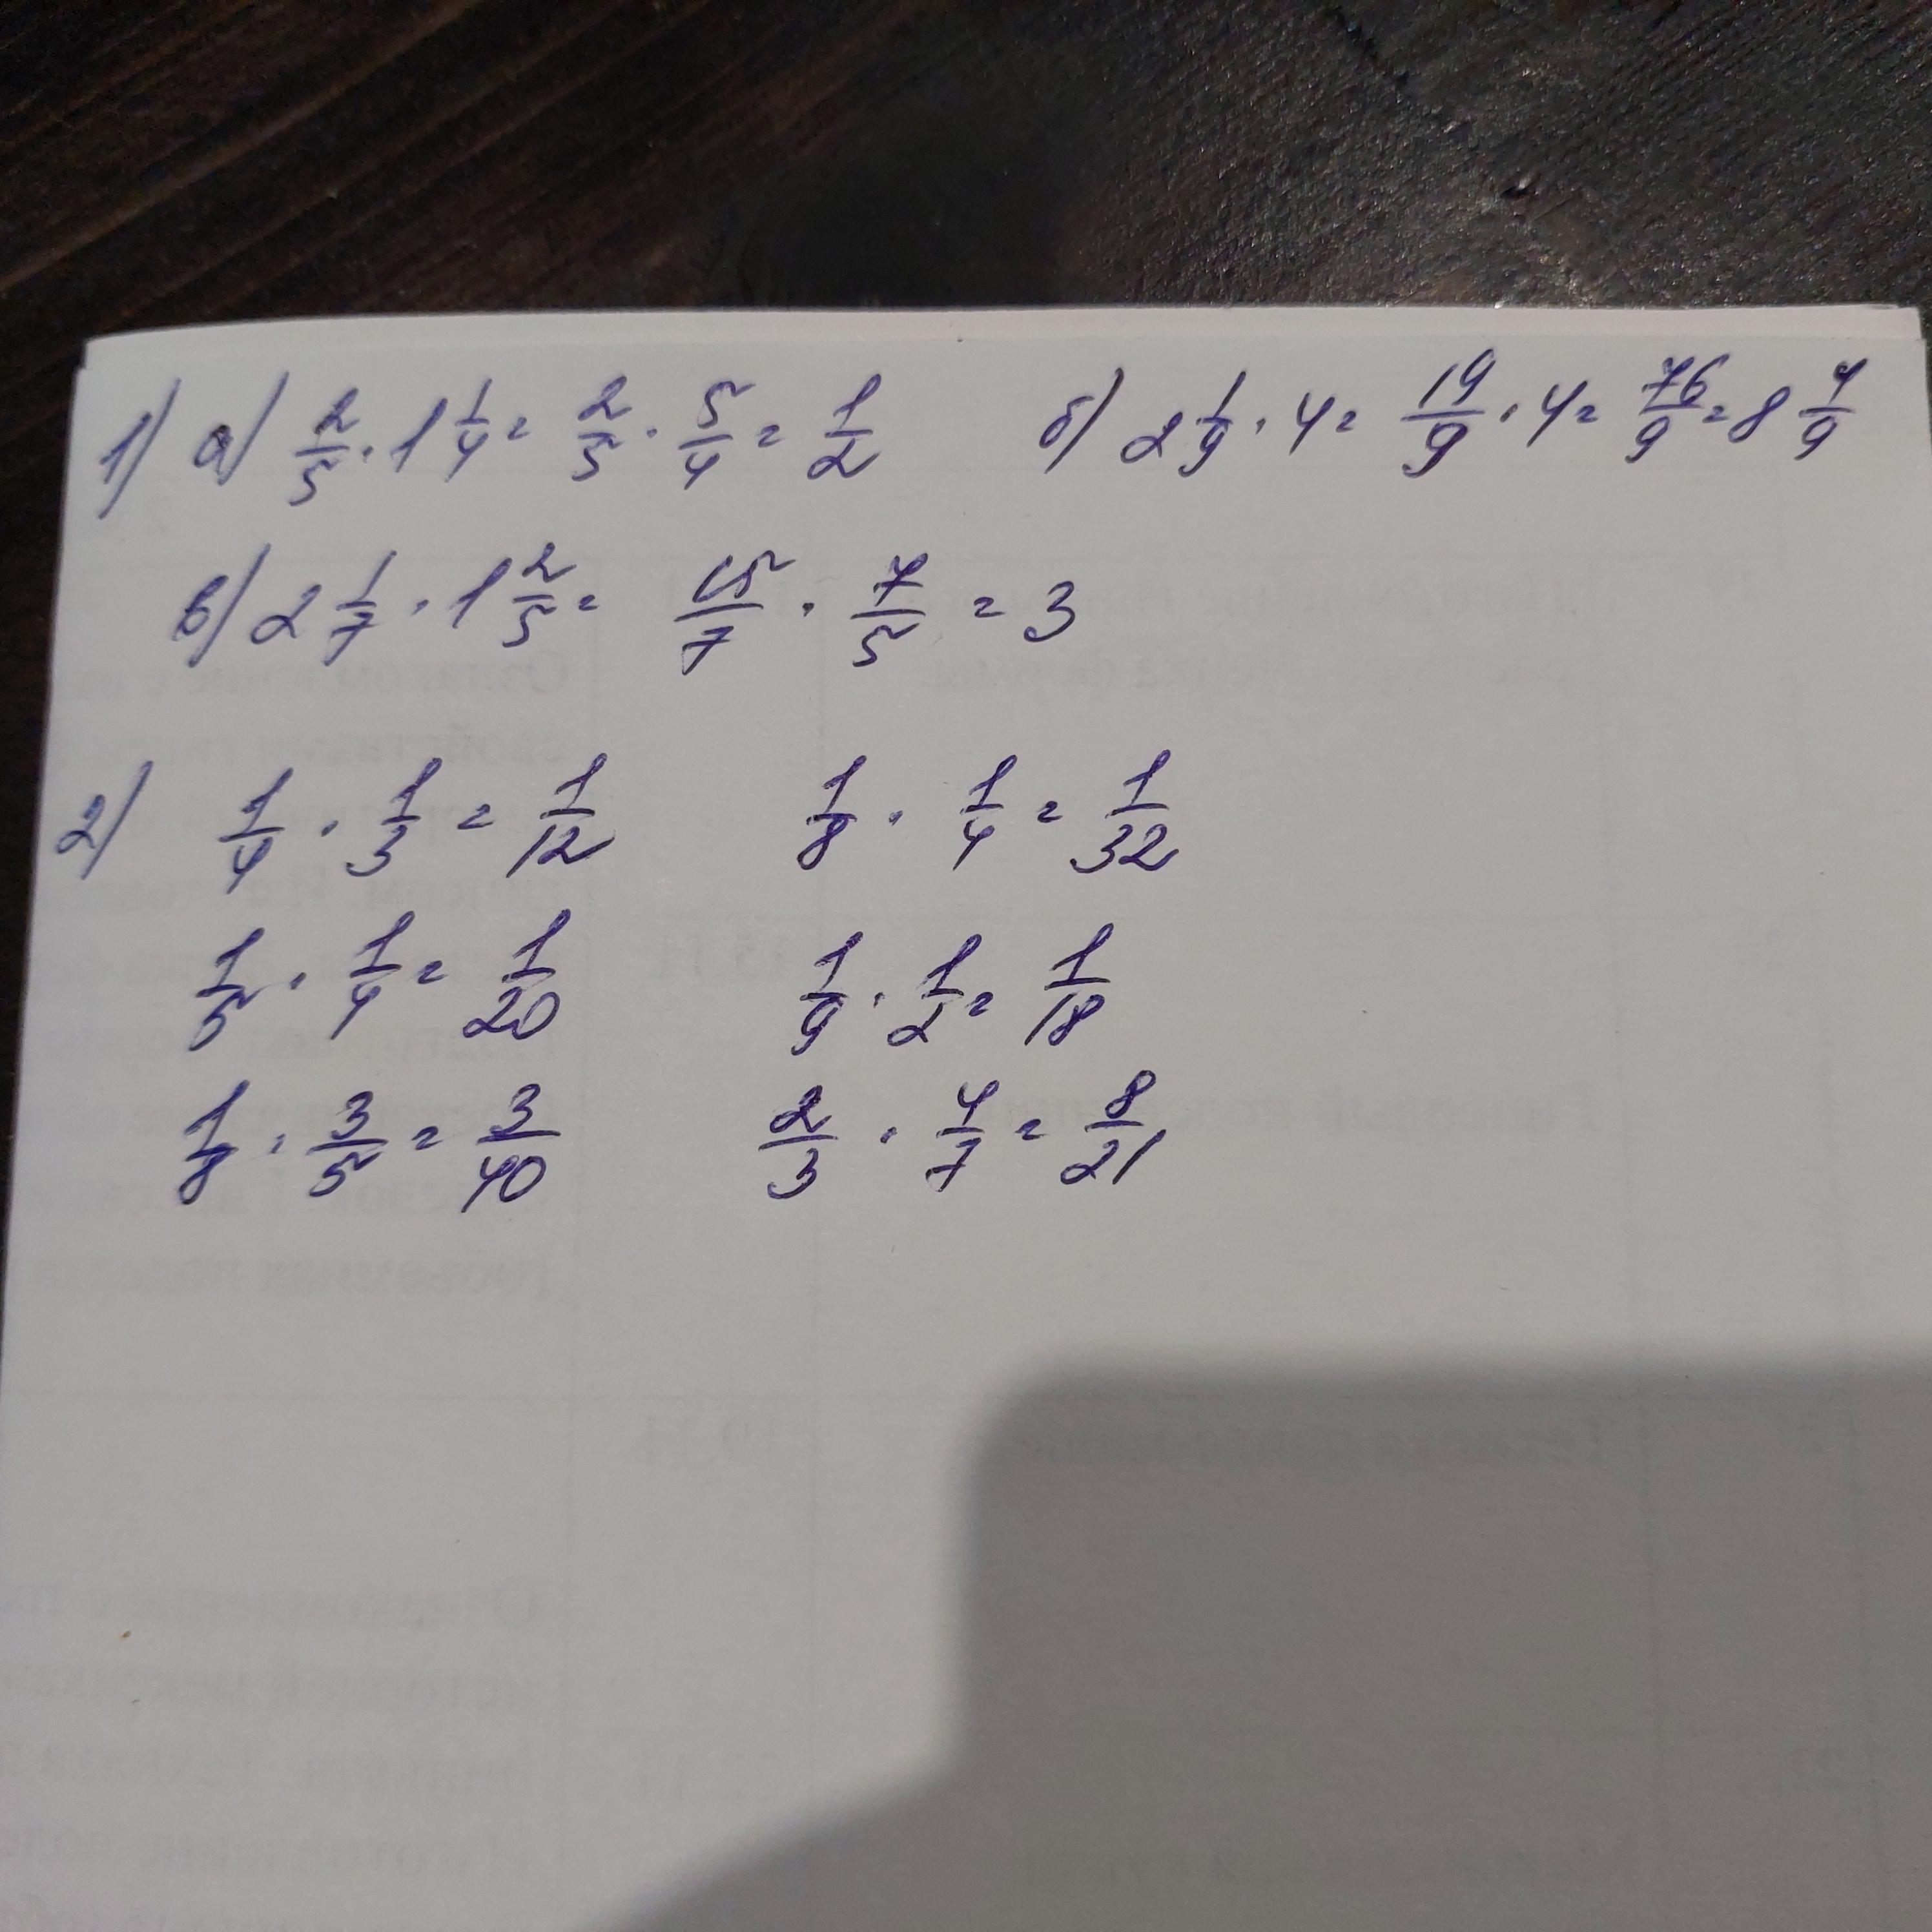 1) а) 2/5 · 1 1/4 = 2/5 · 5/4 = 1/2 б) 2 1/9 · 4 = 19/9 · 4 = 76/9 = 8 4/9
в) 2 1/7 · 1 2/5 = 15/7 · 7/5 = 3
2) 1/4 · 1/3 = 1/12 1/8 · 1/4 = 1/32
1/5 · 1/4 = 1/20 1/9 · 1/2 = 1/18
1/8 · 3/5 = 3/40 2/3 · 4/7 = 8/21